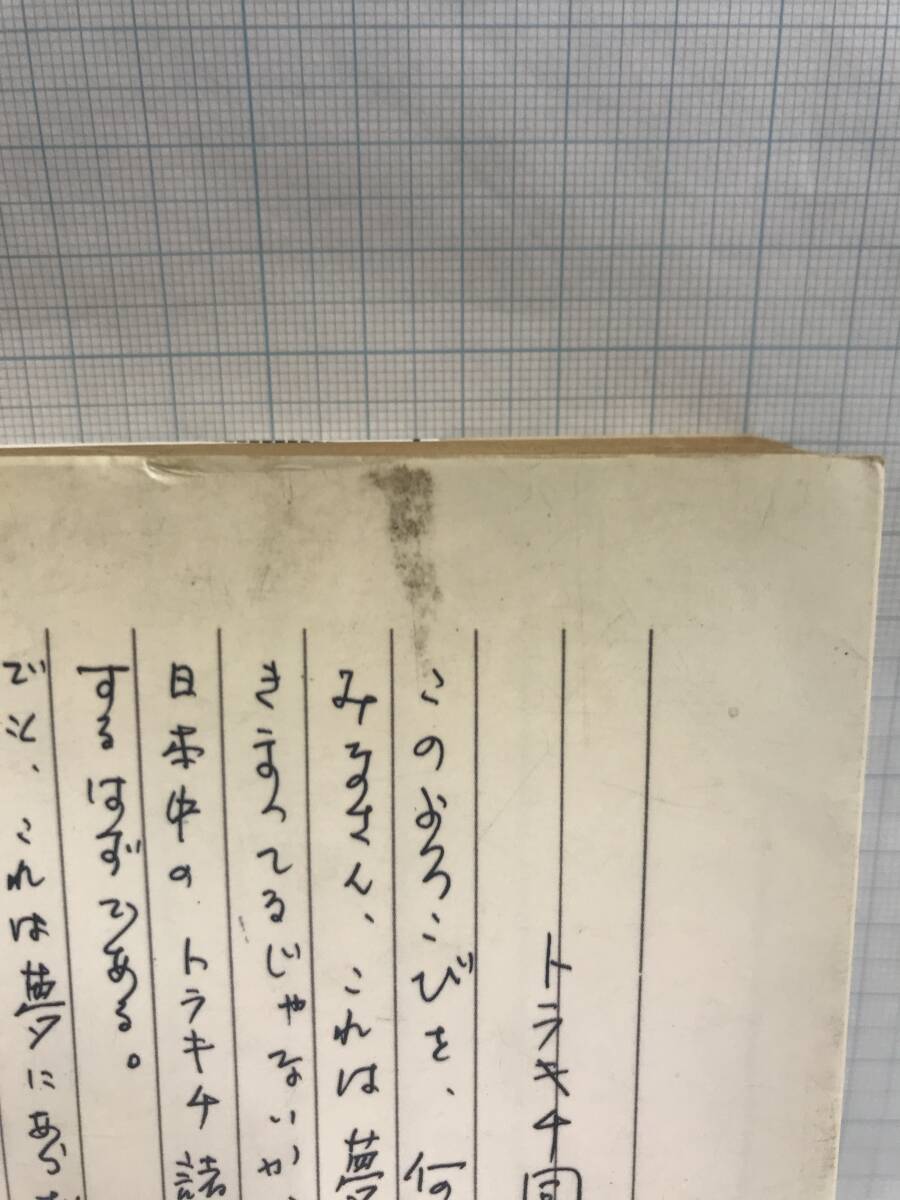 トラキチ
このよろこびを、何
みなさん、これは夢
きまってるじゃないか、
日本中のトラキチ諸
するはずである。
でも、これは夢にあら